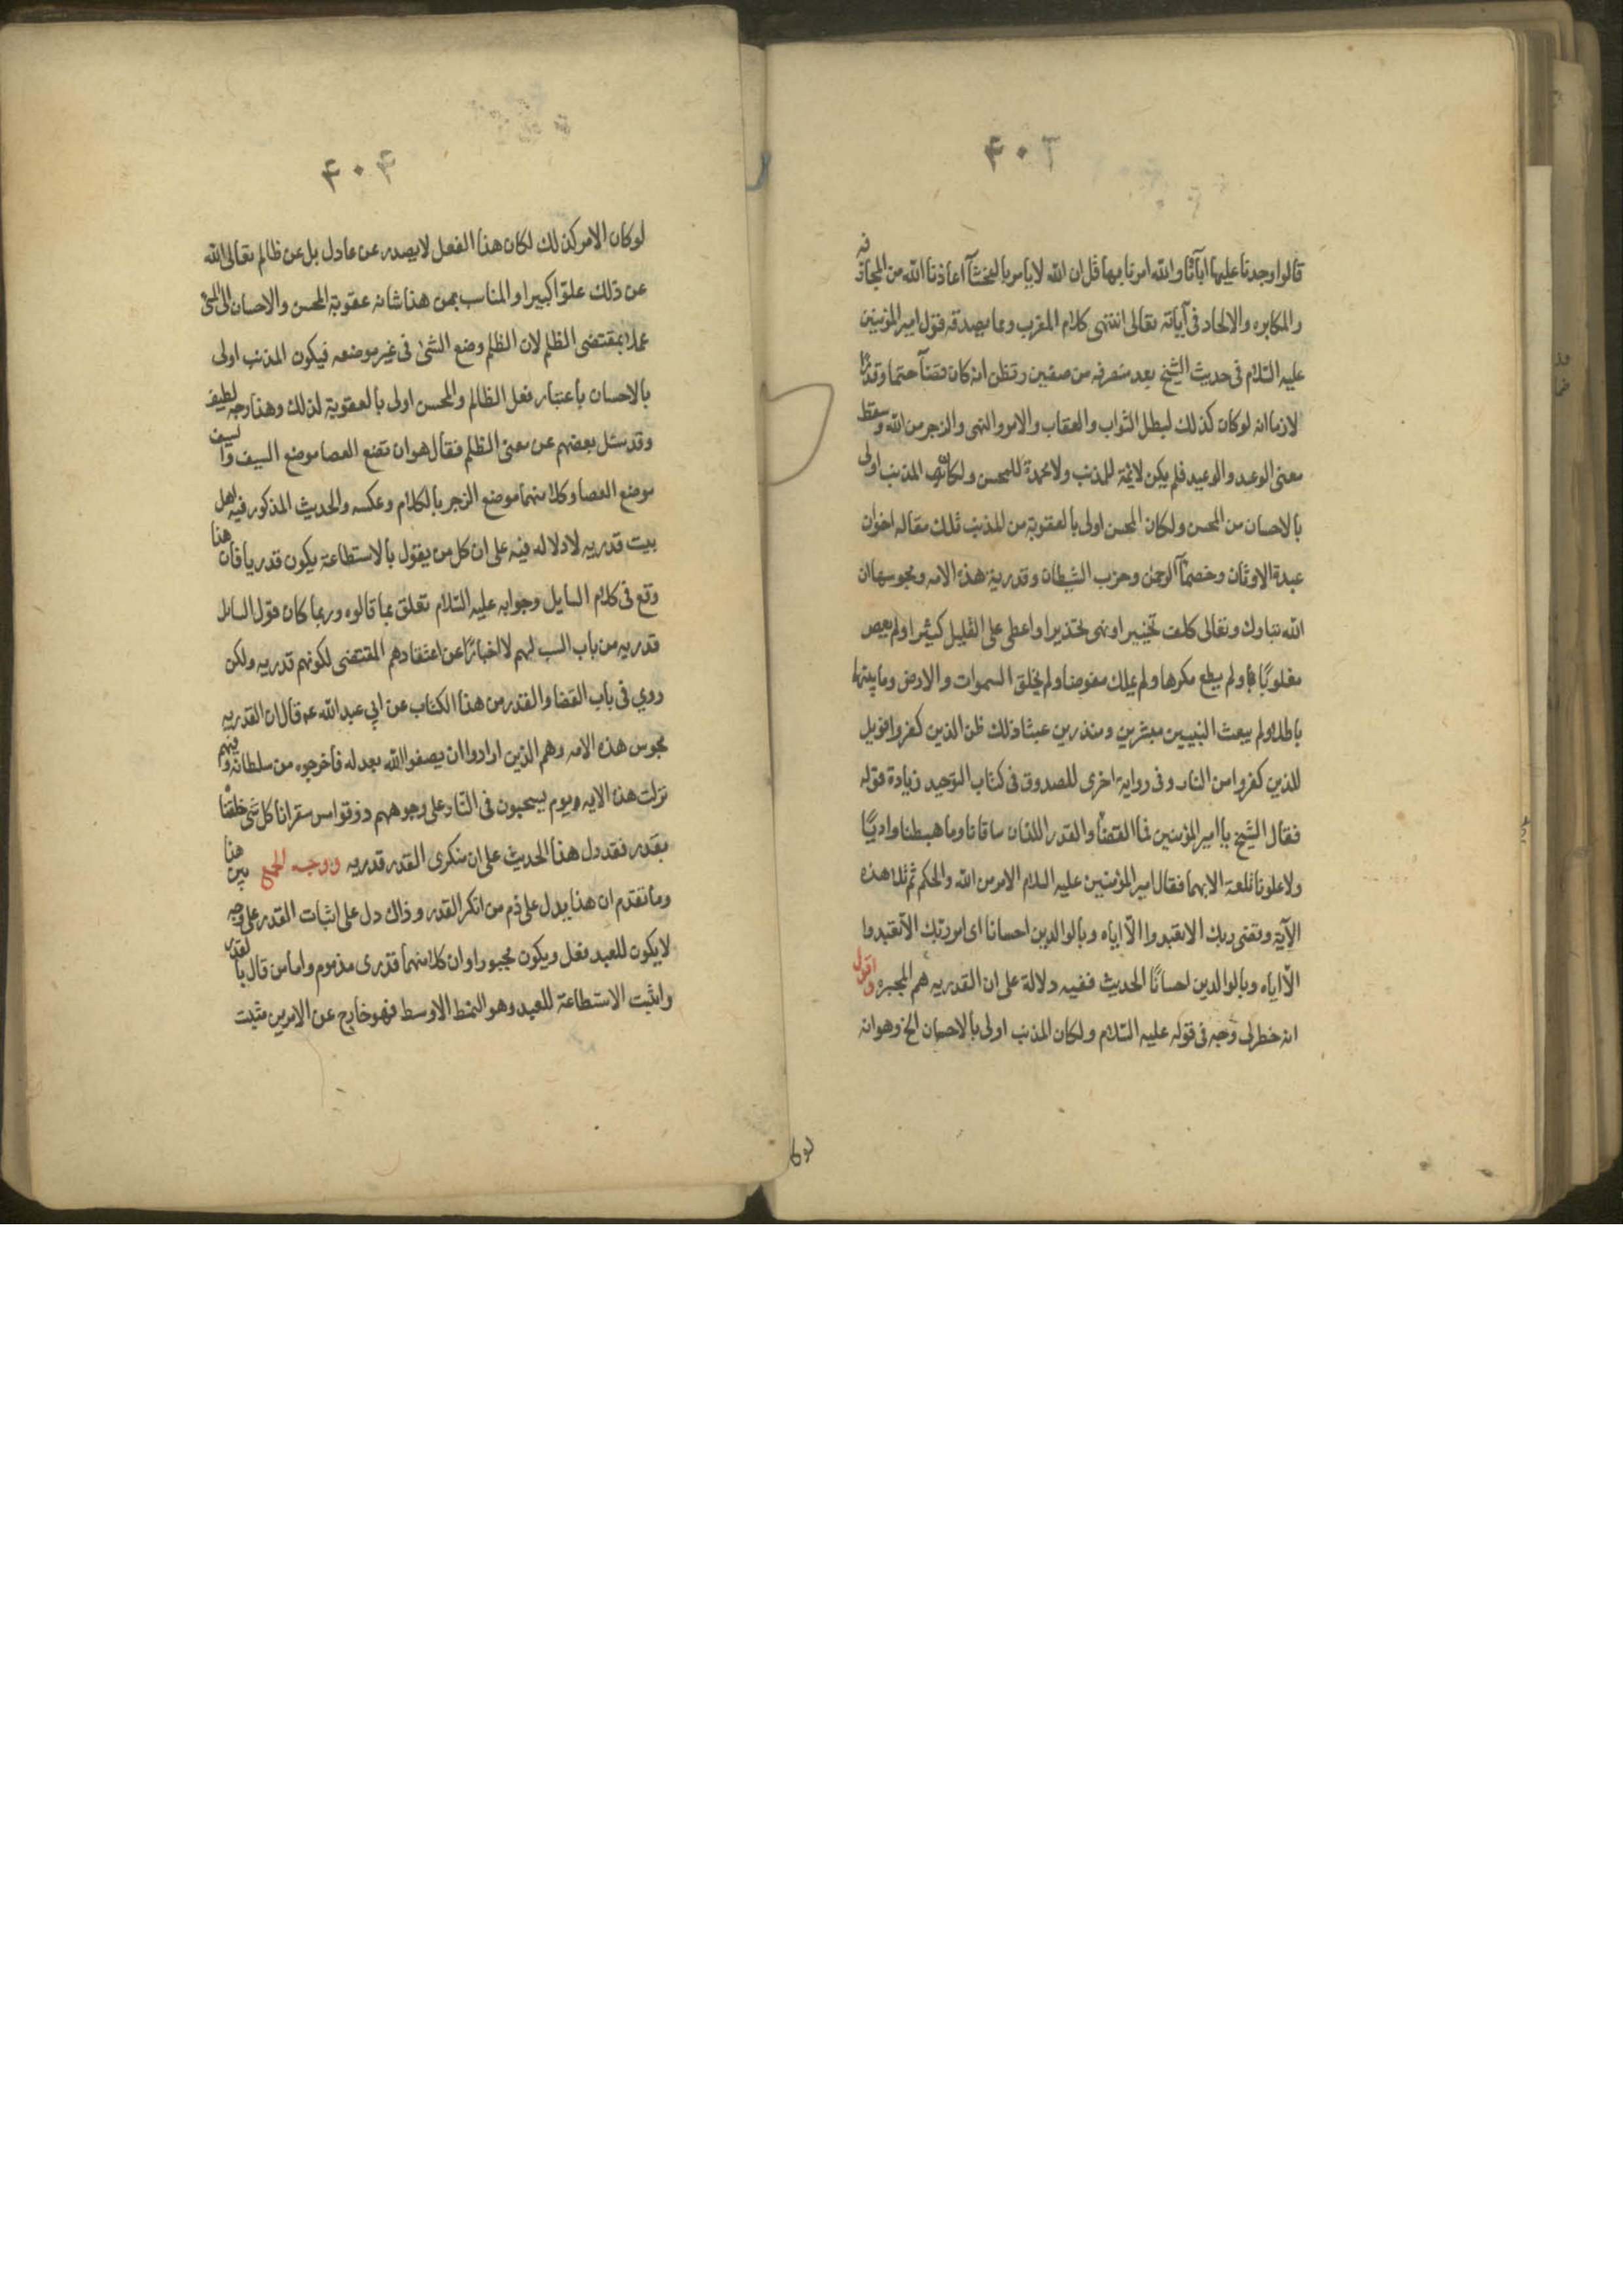 ۴۰۳
قالوا وجدنا عليها اباءنا والله امرنا بها قل ان الله لا يامر بالفحشآ اعاذنا الله من المجازفه
والمكابره والالحاد فى آياته تعالى انتهى كلام المغرب ومما يصدقه قول امير المؤمنين
عليه السّلام فى حديث الشيخ بعد منصرفه من صفين وتظن انه كان قضآ حتما وقدرا
لازما انه لو كان كذلك لبطل الثواب والعقاب والامر والنهى والزجر من الله وسقط
معنى الوعد والوعيد فلم يكن لائمة للمذنب ولا محمدة للمحسن ولكان المذنب اولى
بالاحسان من المحسن ولكان المحسن اولى بالعقوبة من المذنب تلك مقاله اخوان
عبدة الاوثان وخصمآ الرحمن وحزب الشيطان وقدرية هذه الامه ومجوسها ان
الله تبارك وتعالى كلف تخييرا ونهى تحذيرا واعطى على القليل كثيرا ولم يعص
مغلوبًا ولم يطع مكرها ولم يملك مفوضا ولم يخلق السموات والارض وما بينهما
باطلا ولم يبعث النبيين مبشرين ومنذرين عبثا ذلك ظن الذين كفروا فويل
للذين كفروا من النار وفى رواية اخرى للصدوق فى كتاب التوحيد زيادة قوله
فقال الشيخ يا امير المؤمنين فما القضا والقدر اللذان ساقانا وما هبطنا واديًا
ولا علونا تلعة الا بهما فقال امير المؤمنين عليه السلام الامر من الله والحكم ثم تلا هذه
الآية وقضى ربك الا تعبدوا الّا اياه وبالوالدين احسانا اى امر ربّك الّا تعبدوا
الّا اياه وبالوالدين احسانًا الحديث ففيه دلالة على ان القدريه هم المجبره واقول
انه خطر لى وجه فى قوله عليه السّلام ولكان المذنب اولى بالاحسان الخ وهو انه
لو كا
۴۰۴
لو كان الامر كذلك لكان هذا الفعل لا يصدر عن عادل بل عن ظالم تعالى الله
عن ذلك علوّا كبيرا والمناسب بمن هذا شانه عقوبة المحسن والاحسان الى المسئ
عملا بمقتضى الظلم لان الظلم وضع الشئ فى غير موضعه فيكون المذنب اولى
بالاحسان باعتبار فعل الظالم والمحسن اولى بالعقوبة لذلك وهذا وجه لطيف
وقد سئل بعضهم عن معنى الظلم فقال هو ان تضع العصا موضع السيف والسيف
موضع العصا وكلا منهما موضع الزجر بالكلام وعكسه والحديث المذكور فيه اهل
بيت قدريه لا دلاله فيه على ان كل من يقول بالاستطاعة يكون قدريا فان هذا
وقع فى كلام السايل وجوابه عليه السّلام تعلق بما قالوه وربما كان قول السائل
قدريه من باب السب لهم لا اخبارًا عن اعتقادهم المقتضى لكونهم قدريه ولكن
روي فى باب القضا والقدر من هذا الكتاب عن ابي عبد الله عه قال ان القدريه
مجوس هذه الامه وهم الذين ارادوا ان يصفوا الله بعدله فاخرجوه من سلطانه وفيهم
نزلت هذه الايه يوم يسحبون فى النّار على وجوههم ذوقوا مس سقر انا كل شئ خلقناه
بقدر فقد دل هذا الحديث على ان منكرى القدر قدريه ووجه الجمع بين هذا
وما تقدم ان هذا يدل على ذم من انكر القدر وذاك دل على اثبات القدر على وجه
لا يكون للعبد فعل ويكون مجبورا وان كلا منهما قدرى مذموم واما من قال بالقدر
واثبت الاستطاعة للعبد وهو النمط الاوسط فهو خارج عن الامرين مثبت